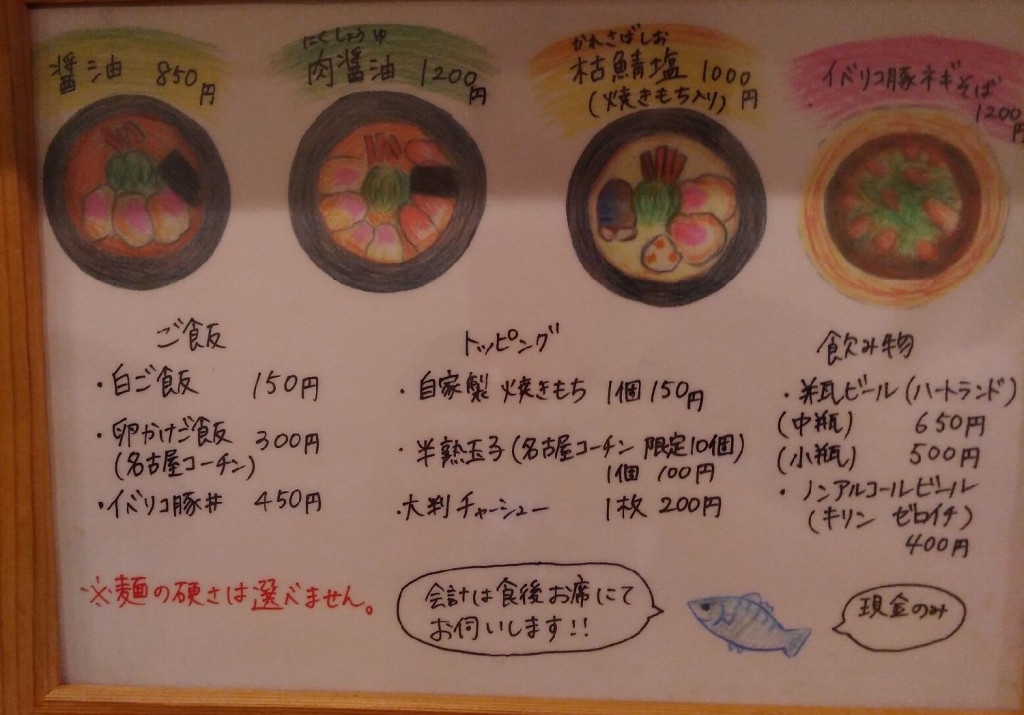 醤油 850円
にくしょうゆ
肉醤油 1200円
かれさばしお
枯鯖塩 1000円
(焼きもち入り)
イベリコ豚ネギそば
1200円
ご飯
・白ご飯 150円
・卵かけご飯 300円
(名古屋コーチン)
・イベリコ豚丼 450円
トッピング
・自家製 焼きもち 1個 150円
・半熟玉子(名古屋コーチン 限定10個)
1個 100円
・大判チャーシュー 1枚 200円
飲み物
・瓶ビール(ハートランド)
(中瓶) 650円
(小瓶) 500円
・ノンアルコールビール
(キリン ゼロイチ)
400円
※麺の硬さは選べません。
会計は食後お席にて
お伺いします!!
現金のみ